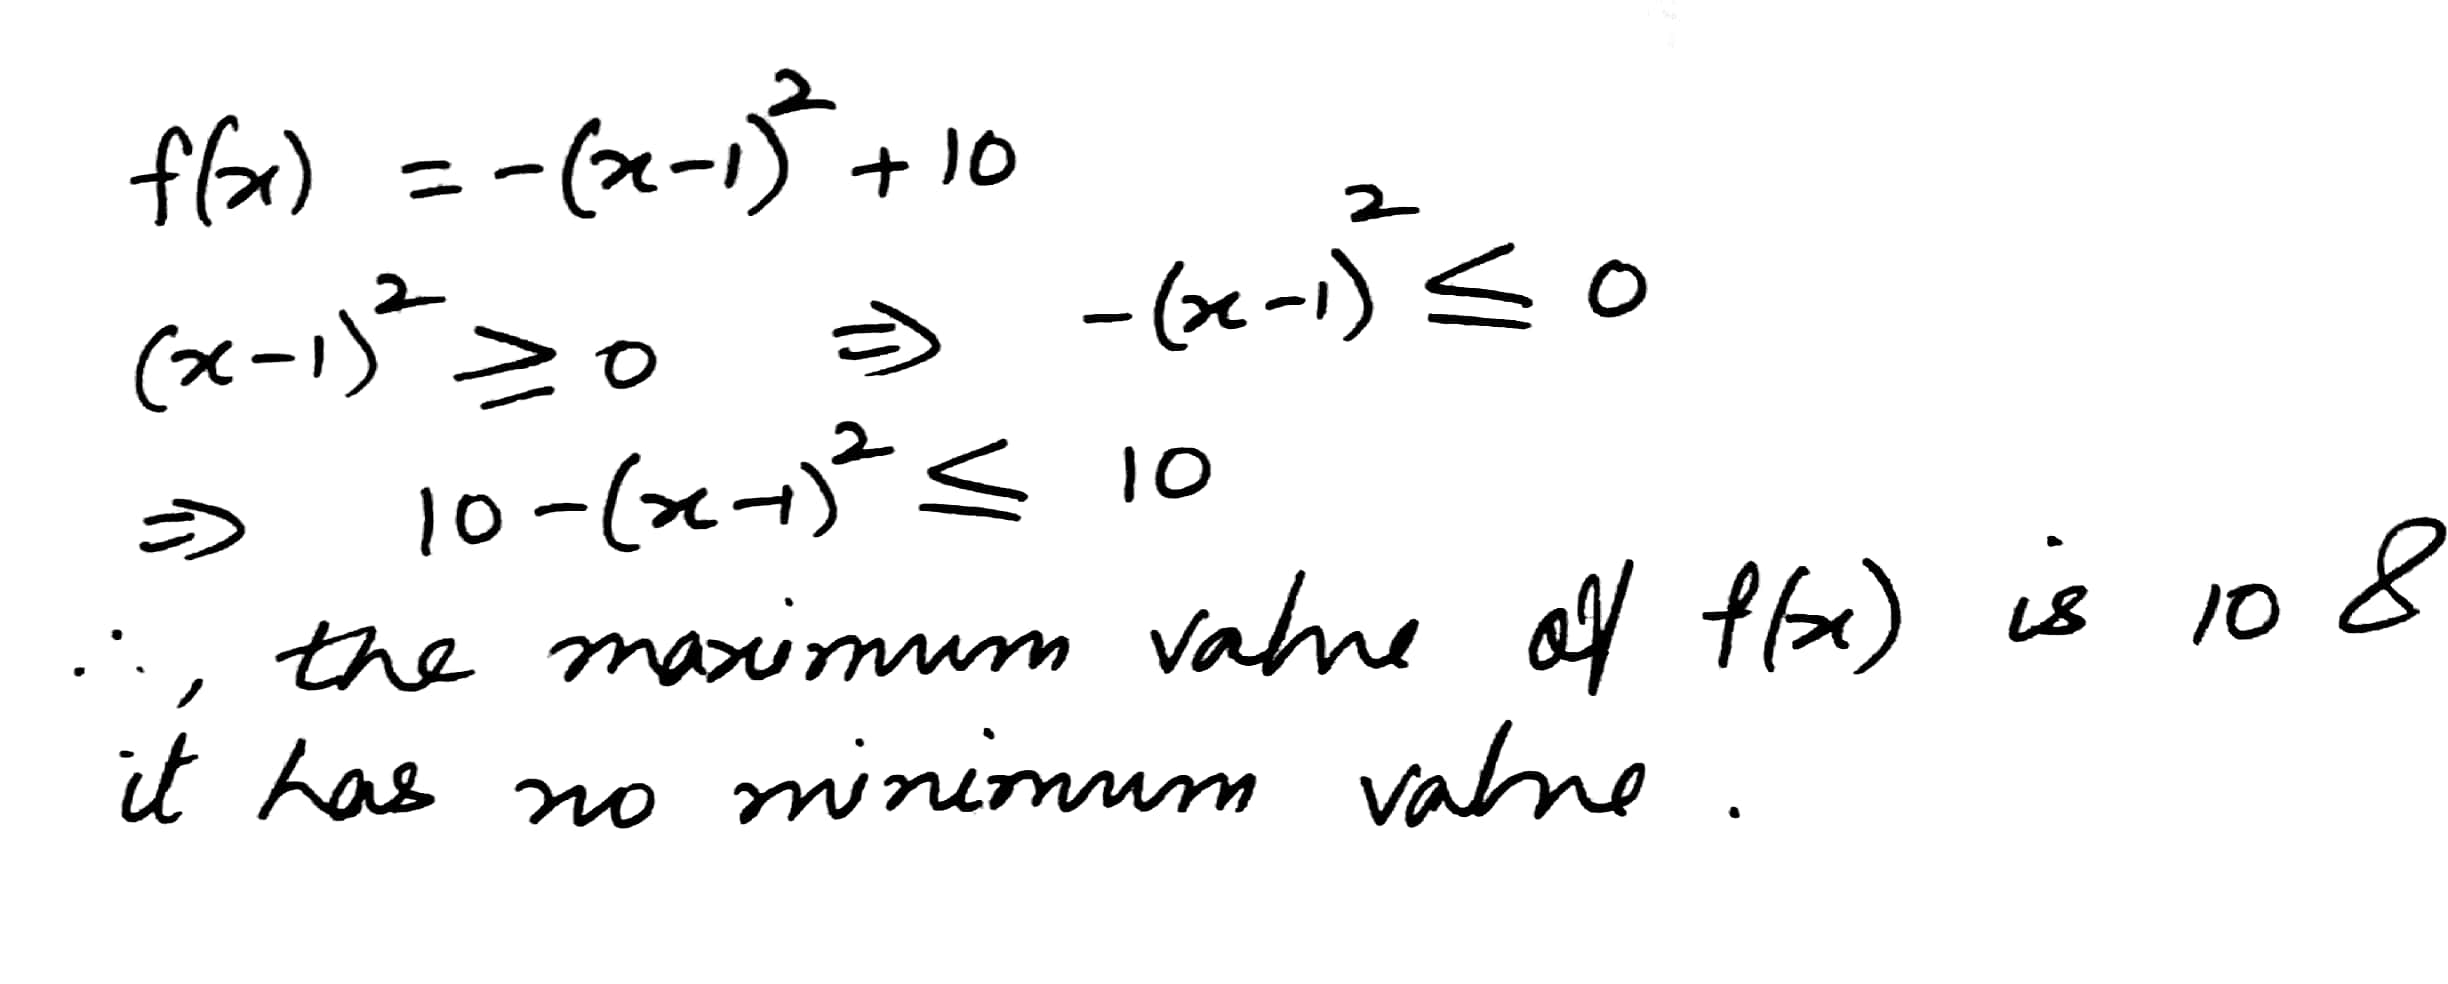 f(x) = -(x-1)² + 10
(x-1)² ≥ 0 ⇒ -(x-1)² ≤ 0
⇒ 10-(x-1)² ≤ 10
∴, the maximum value of f(x) is 10 &
it has no minimum value.